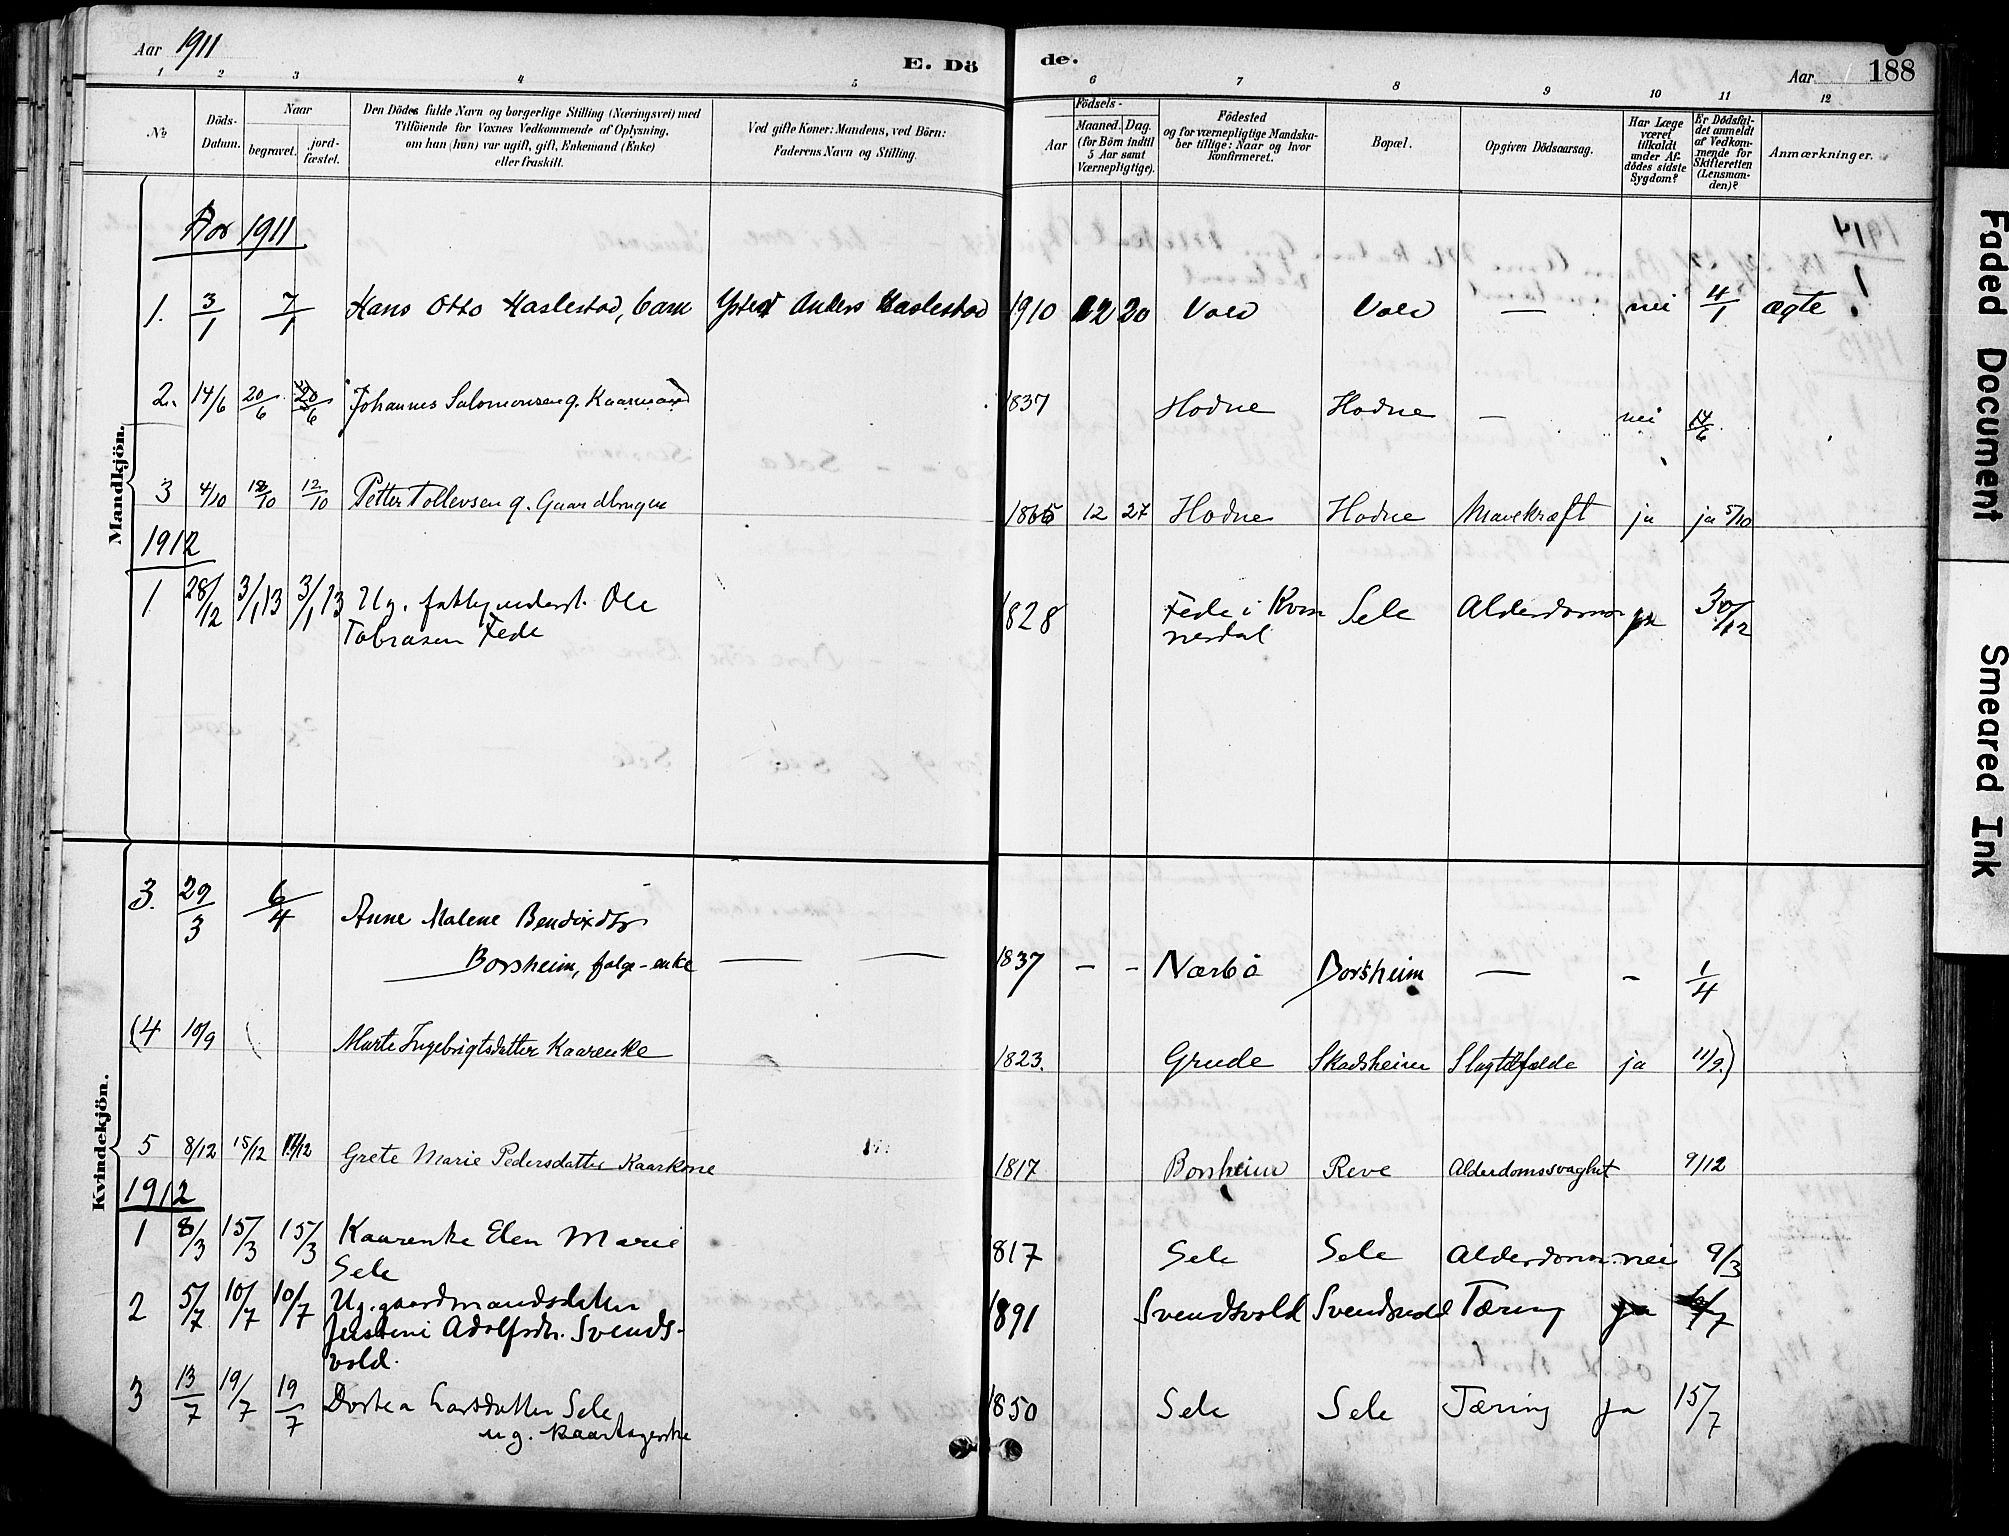 Aar 1911
E. Döde.
Aar 188
1 2 3 4 5 6 7 8 9 10 11 12
No
Döds-Datum.
Naar
begravet.
jord-fæstet.
Den Dödes fulde Navn og borgerlige Stilling (Næringsvei) med
Tilföiende for Voxnes Vedkommende af Oplysning,
om han (hun) var ugift, gift, Enkemand (Enke)
eller fraskilt.
Ved gifte Koner: Mandens, ved Börn:
Faderens Navn og Stilling.
Födsels-
Aar
Maaned. Dag.
(for Börn indtil
5 Aar samt
Værnepligtige).
Födested
og for værnepligtige Mandska-
ber tillige: Naar og hvor
konfirmeret.
Bopæl.
Opgiven Dödsaarsag.
Har Læge
været
tilkaldt
under Af-
dödes sidste
Sygdom?
Er Dödsfal-
det anmeldt
af Vedkom-
mende for
Skifteretten
(Lensman-
den)?
Anmærkninger.
Mandkjön.
Aar 1911
1. 3/1 7/1 Hans Otto Haslestad, barn Anders Haslestad 1910 12 20 Vold Vold — nei 4/1 ægte
2. 14/6 20/6 20/6 Johannes Salomonsen g. Kaarmand 1837 Hodne Hodne — nei 14/6
3 4/10 12/10 12/10 Petter Tollevsen g. Gaardbruger 1865 12 27 Hodne Hodne Mavekræft ja ja 5/10
1912
1 28/12 3/1 13 3/1 13 Ug. fattigunderst. Ole
Tobiasen Fede 1828 Fede i Kvin
nesdal Sele Alderdom ja 30/12
Kvindekjön.
3. 29/3 6/4 Anne Malene Bendixdtr
Borsheim, folge-enke — — 1837 – – Nærbø Borsheim — – 1/4
(4 10/9 ( Marte Ingebrigtsdatter Kaarenke 1823. Grude Skadsheim Slagtilfælde ja 11/9.)
5 8/12 15/12 15/12 Grete Marie Pedersdatter Kaarkone 1817 Borsheim Reve Alderdomssvaghet 9/12
1912
1 8/3 15/3 15/3 Kaarenke Elen Marie
Sele 1817 Sele Sele Alderdom nei 9/3
2 5/7 10/7 10/7 Ug. gaardmandsdatter
Justine Adolfsdtr. Svends-
vold. 1891 Svendsvold Svendsvold Tæring ja
3 13/7 19/7 19/7 Dortea Larsdatter Sele
ug. Kaartagerske 1850 Sele Sele Tæring ja 15/7
Faded Document
Smeared Ink